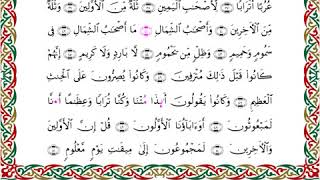 عُرُبًا أَتْرَابًا ۝ لِّأَصْحَٰبِ ٱلْيَمِينِ ۝ ثُلَّةٌ مِّنَ ٱلْأَوَّلِينَ ۝ وَثُلَّةٌ
مِّنَ ٱلْأَخِرِينَ ۝ وَأَصْحَٰبُ ٱلشِّمَالِ ۝ مَا أَصْحَٰبُ ٱلشِّمَالِ ۝ فِى
سَمُومٍ وَحَمِيمٍ ۝ وَظِلٍّ مِّن يَحْمُومٍ ۝ لَّا بَارِدٍ وَلَا كَرِيمٍ ۝ إِنَّهُمْ
كَانُوا۟ قَبْلَ ذَٰلِكَ مُتْرَفِينَ ۝ وَكَانُوا۟ يُصِرُّونَ عَلَى ٱلْحِنثِ
ٱلْعَظِيمِ ۝ وَكَانُوا۟ يَقُولُونَ ۝ أَئِذَا مُتْنَا وَكُنَّا تُرَابًا وَعِظَٰمًا أَءِنَّا
لَمَبْعُوثُونَ ۝ أَوَءَابَآؤُنَا ٱلْأَوَّلُونَ ۝ قُلْ إِنَّ ٱلْأَوَّلِينَ
وَٱلْأَخِرِينَ ۝ لَمَجْمُوعُونَ إِلَىٰ مِيقَٰتِ يَوْمٍ مَّعْلُومٍ ۝